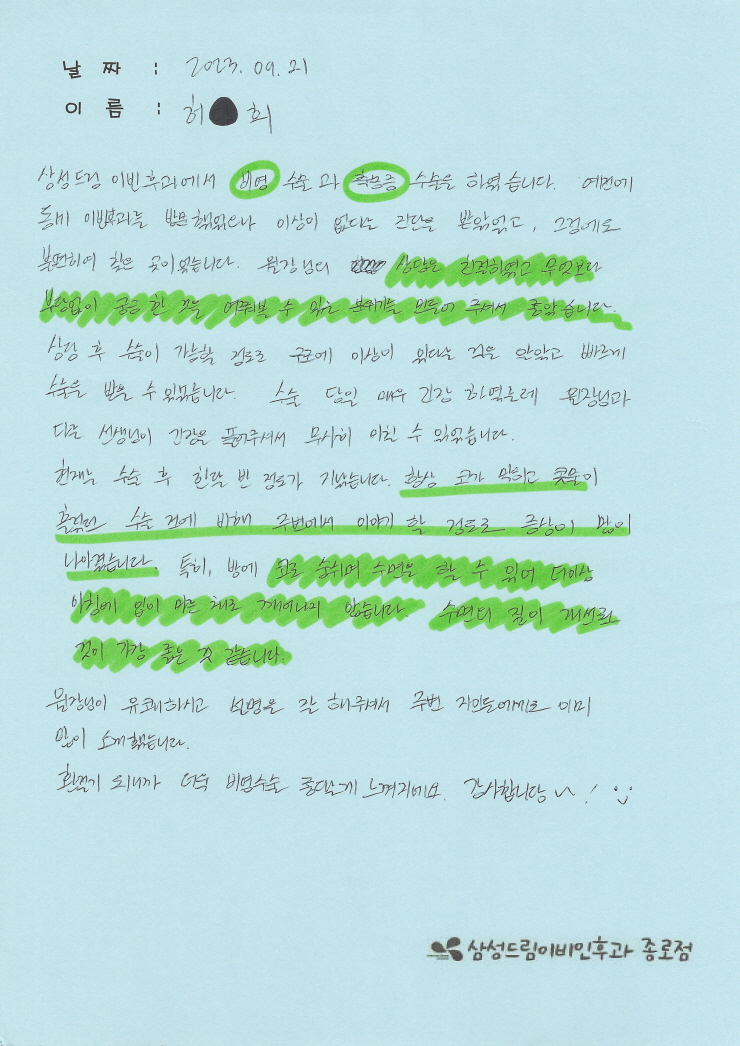 날 짜 : 2023. 09. 21
이 름 : 허 희
삼성드림 이빈후과에서 비염 수술과 축농증 수술을 하였습니다. 예전에
동네 이빈후과를 방문했었으나 이상이 없다는 진단을 받았었고, 그럼에도
불편하여 찾은 곳이었습니다. 원장님의 상담은 친절하였고 무엇보다
부담없이 궁금한 것을 여쭤볼 수 있는 분위기를 만들어 주셔서 좋았습니다.
상담 후 수술이 가능할 정도로 구조에 이상이 있다는 것을 알았고 빠르게
수술을 받을 수 있었습니다. 수술 당일 매우 긴장 하였는데 원장님과
다른 선생님이 긴장을 풀어주셔서 무사히 마칠 수 있었습니다.
현재는 수술 후 한달 반 정도가 지났습니다. 항상 코가 막히고 콧물이
흘렀던 수술 전에 비해 주변에서 이야기 할 정도로 증상이 많이
나아졌습니다. 특히, 밤에 코로 숨쉬며 수면을 할 수 있어 더이상
아침에 입이 마른 채로 깨어나지 않습니다. 수면의 질이 개선된
것이 가장 좋은 것 같습니다.
원장님이 유쾌하시고 설명을 잘 해주셔서 주변 지인들에게도 이미
많이 소개했습니다.
환절기 되니까 더욱 비염수술 좋다는게 느껴지네요. 감사합니당~!
삼성드림이비인후과 종로점